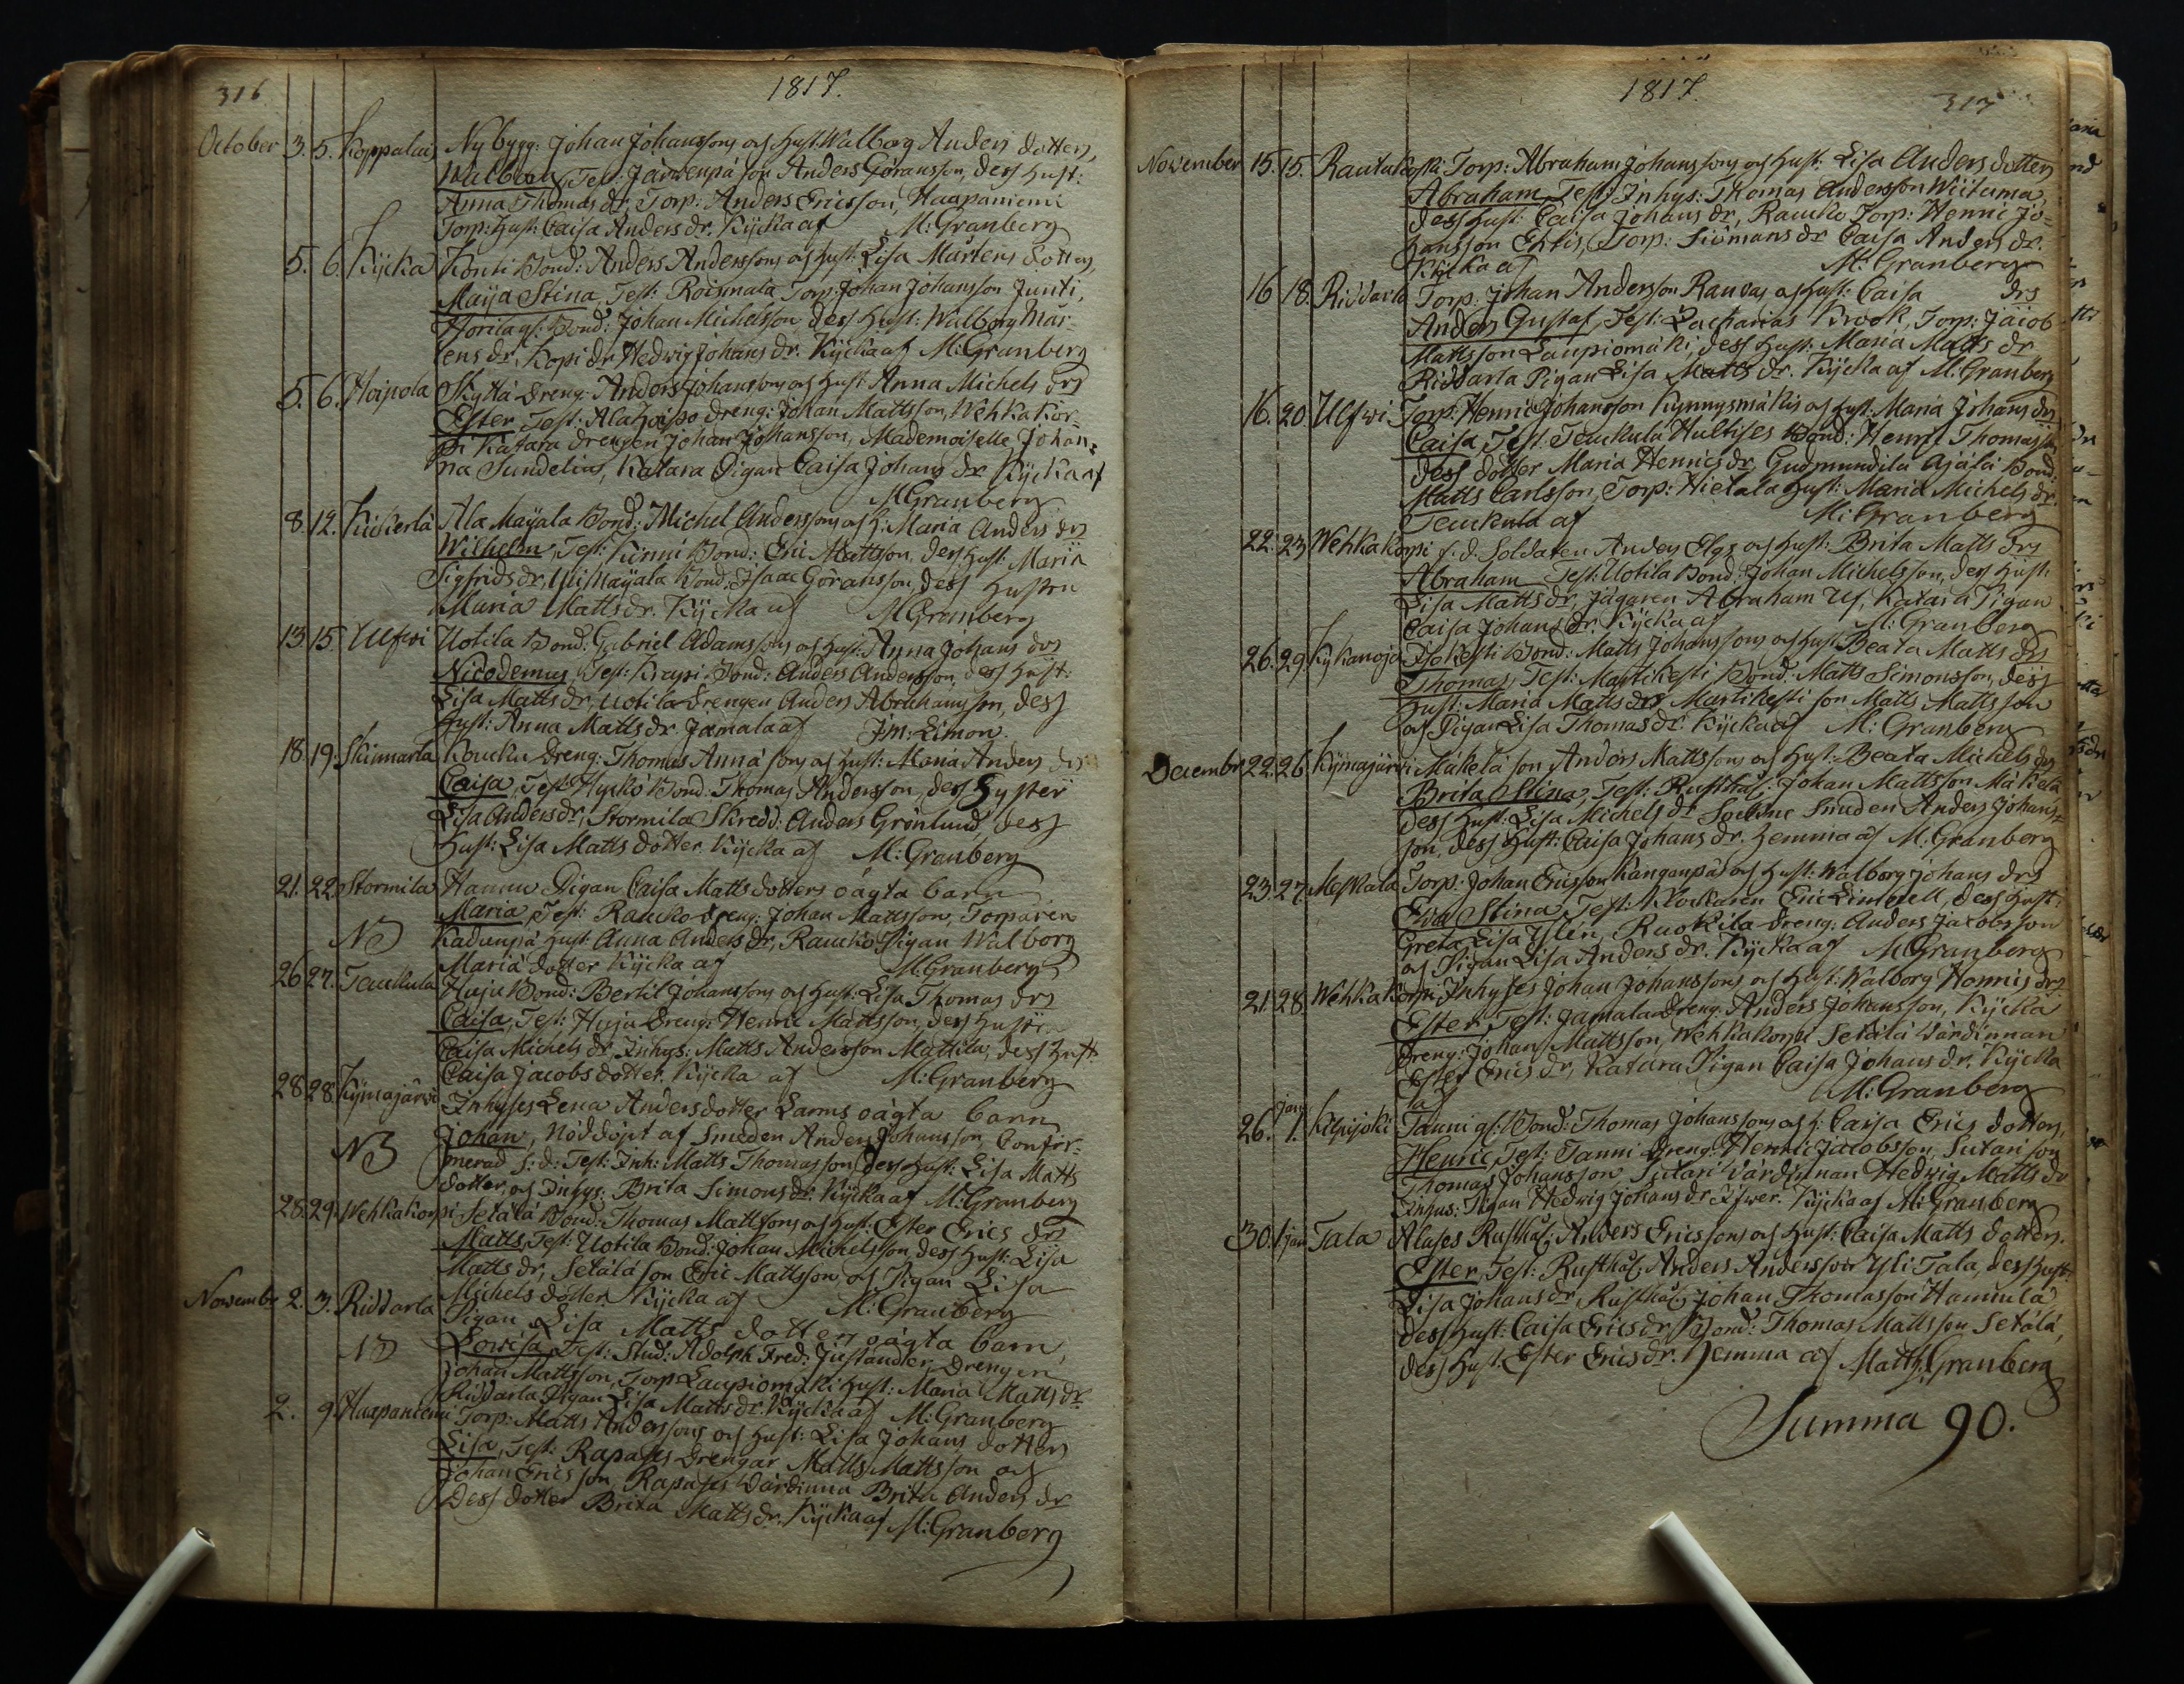 316
1817.
October 3. 5. Koppalais Nybygg: Johan Johanssons och Hust. Walborg Anders dotters,
Walborg, Test: Järwenpä son Anders Göransson, dess Hust:
Anna Thomas dr, Torp: Anders Ericsson, Haapaniemi
Torp: Hust: Caisa Anders dr. Kÿcka af M: Granberg
5. 6. Kÿcka Konni Bond: Anders Anderssons och Hust: Lisa Mårtens dotters,
Maija Stina, Test: Roismala Torp: Johan Johansson Junti,
Horila gl: Bond: Johan Michelsson, dess Hust: Walborg Mår-
tens dr, Kopi dr Hedwig Johans dr. Kÿcka af M: Granberg
5. 6. Hoipola Skÿttä dreng: Anders Johanssons och Hust. Anna Michels drs
Ester, Test: Alahoipo dreng: Johan Mattsson, Wehkakor-
pi Katara drengen Johan Johansson, Mademoiselle Johan-
na Sundelius, Katara Pigan Caisa Johans dr Kÿcka af
M Granberg
8. 12. Kickerlä Ala Maÿala Bond: Michel Anderssons och H: Maria Anders drs
Wilhelm, Test: Kinni Bond: Eric Mattsson, dess Hust: Maria
Sigfrids dr, Ÿli Maÿala Bond: Isaac Göransson, dess Hustru
Maria Matts dr. Kÿcka af M Granberg
13. 15. Ulfwi Uotila Bond: Gabriel Adamssons och Hust: Anna Johans drs
Nicodemus, Test: Krapi Bond: Anders Andersson, dess Hust:
Lisa Matts dr, Uotila drengen Anders Abrahamsson, dess
Hust: Anna Matts dr Jamala af J M: Limon.
18. 19. Skinnarla Koucku Dreng: Thomas Annäsons och Hust: Maria Anders drs
Caisa, Test: Hÿckö Bond: Thomas Andersson, dess Sÿster
Lisa Anders dr, Stormila Skredd: Anders Grönlund, dess
Hust: Lisa Matts dotter. Kÿcka af M: Granberg
21. 22. Stormila Hannu Pigan Caisa Matts dotters oägta barn
Maria, Test: Raucko dreng: Johan Mattsson, Torparen
NB Kadunpä Hust: Anna Anders dr, Raucko Pigan Walborg
Maria dotter Kÿcka af M: Granberg
26 27. Teuckula Huju Bond: Bertil Johanssons och Hust: Lisa Thomas drs
Caisa, Test: Huju dreng: Henric Mattsson, dess Hust:
Caisa Michels dr, Inhys: Matts Andersson Mattila, dess Hust
Caisa Jacobs dotter. Kÿcka af M: Granberg
28 28. Kÿmajärwi Inhyses Lena Andersdotter Larms oägta barn
Johan, Nöddöpt af Smeden Anders Johansson, Confir-
NB merad s: d: Test: Inh: Matts Thomasson, dess Hust: Lisa Matts
dotter, och Inhys: Brita Simons dr. Kÿcka af M: Granberg
28. 29. Wehkakorpi Setälä Bond: Thomas Mattsons och Hust: Ester Erics drs
Matts, Test: Uotila Bond: Johan Michelsson, dess Hust: Lisa
Matts dr, Setälä son Eric Mattsson, och Pigan Lisa
Michels dotter Kÿcka af M: Granberg
November 2. 3. Riddarla Pigan Lisa Matts dotters oägta barn,
NB Lowisa, Test: Stud: Adolph Fred: Justander, Drengen
Johan Mattsson, Torp Laupiomäki Hust: Maria Matts dr
Riddarla Pigan Lisa Matts dr. Kÿcka af M: Granberg
2. 9. Haapaniemi Torp: Matts Anderssons och Hust: Lisa Johans dotters
Lisa, Test: Rapases drengar Matts Mattsson och
Johan Ericsson, Rapases Värdinna Brita Anders dr
Dess dotter Brita Matts dr. Kÿcka af M: Granberg
1817.
317
November 15. 15. Rautakoski Torp: Abraham Johanssons och Hust: Lisa Anders dotters
Abraham, Test: Inhys: Thomas Andersson Wiituma,
dess Hust: Caisa Johans dr, Raucko Torp: Henric Jo-
hansson Ehlis, Torp: Siömans dr Caisa Anders dr.
Kÿcka af M: Granberg
16 18. Riddarla Torp: Johan Andersson Rauvas och Hust: Caisa drs
Anders Gustaf, Test: Zacharias Krook, Torp: Jacob
Mattsson Laupiomäki, dess Hust: Maria Matts dr
Riddarla Pigan Lisa Matts dr. Kÿcka af M: Granberg
16. 20. Ulfwi Torp: Henric Johansson Kynnysmäkis och Hust: Maria Johans drs
Caisa, Test: Teuckula Hultises Bond: Henric Thomasson
dess dotter Maria Henrics dr, Gudmundila Ajälä Bond:
Matts Carlsson, Torp: Hietala Hust: Maria Michels dr.
Teuckula af M: Granberg
22. 23 Wehkakorpi f. d. Soldaten Anders Elgs och Hust: Brita Matts drs
Abraham Test: Uotila Bond: Johan Michelsson, dess Hust:
Lisa Matts dr, Jägaren Abraham Ulf, Katara Pigan
Caisa Johans dr. Kÿcka af M: Granberg
26. 29. Kÿkanoja Isokesti Bond: Matts Johanssons och Hust: Beata Matts drs
Thomas, Test: Martikesti Bond: Matts Simonsson, dess
Hust: Maria Matts dr Martikesti son Matts Mattsson
och Pigan Lisa Thomas dr. Kÿcka af M: Granberg
December 22. 26. Kÿmajärwi Mäkelä son Anders Mattssons och Hust: Beata Michels drs
Brita Stina, Test: Rusthål: Johan Mattsson Mäkelä
dess Hust: Lisa Michels dr Sockne Smeden Anders Johans-
son, dess Hust: Caisa Johans dr. Hemma af M: Granberg
23. 27. Meskala Torp: Johan Ericsson Kanganpäs och Hust: Walborg Johans drs
Ewa Stina, Test: Klockaren Eric Limnell, dess Hust:
Greta Lisa Iflen, Ruokila dreng: Anders Jacobsson
och Pigan Lisa Anders dr. Kÿcka af M Granberg
21. 28. Wehkakorpi Inhyses Johan Johanssons och Hust: Walborg Henrics drs
Ester, Test: Jamala dreng: Anders Johansson, Kÿcka
dreng: Johan Mattsson, Wehkakorpi Setälä Värdinnan
Ester Erics dr, Katara Pigan Caisa Johans dr. Kÿcka
af M: Granberg
26. Janr 1. Kilpijoki Tanni gl: Bond: Thomas Johanssons och H: Caisa Erics dotters,
Henric, Test: Tanni dreng: Henric Jacobsson, Sutari son
Thomas Johansson, Sutari Värdinnan Hedwig Matts dr
Pigan Hedwig Johans dr Kÿcka af M: Granberg
30. 1 Jan Tala Alases Rusthål: Anders Ericssons och Hust: Caisa Matts dotters.
Ester, Test: Rusthål: Anders Andersson Ÿli Tala, dess Hust:
Lisa Johans dr, Rusthål: Johan Thomasson Hannula
dess Hust: Caisa Erics dr, Bond: Thomas Mattsson Setälä,
dess Hust: Ester Erics dr. Hemma af Matth: Granberg
Summa 90.